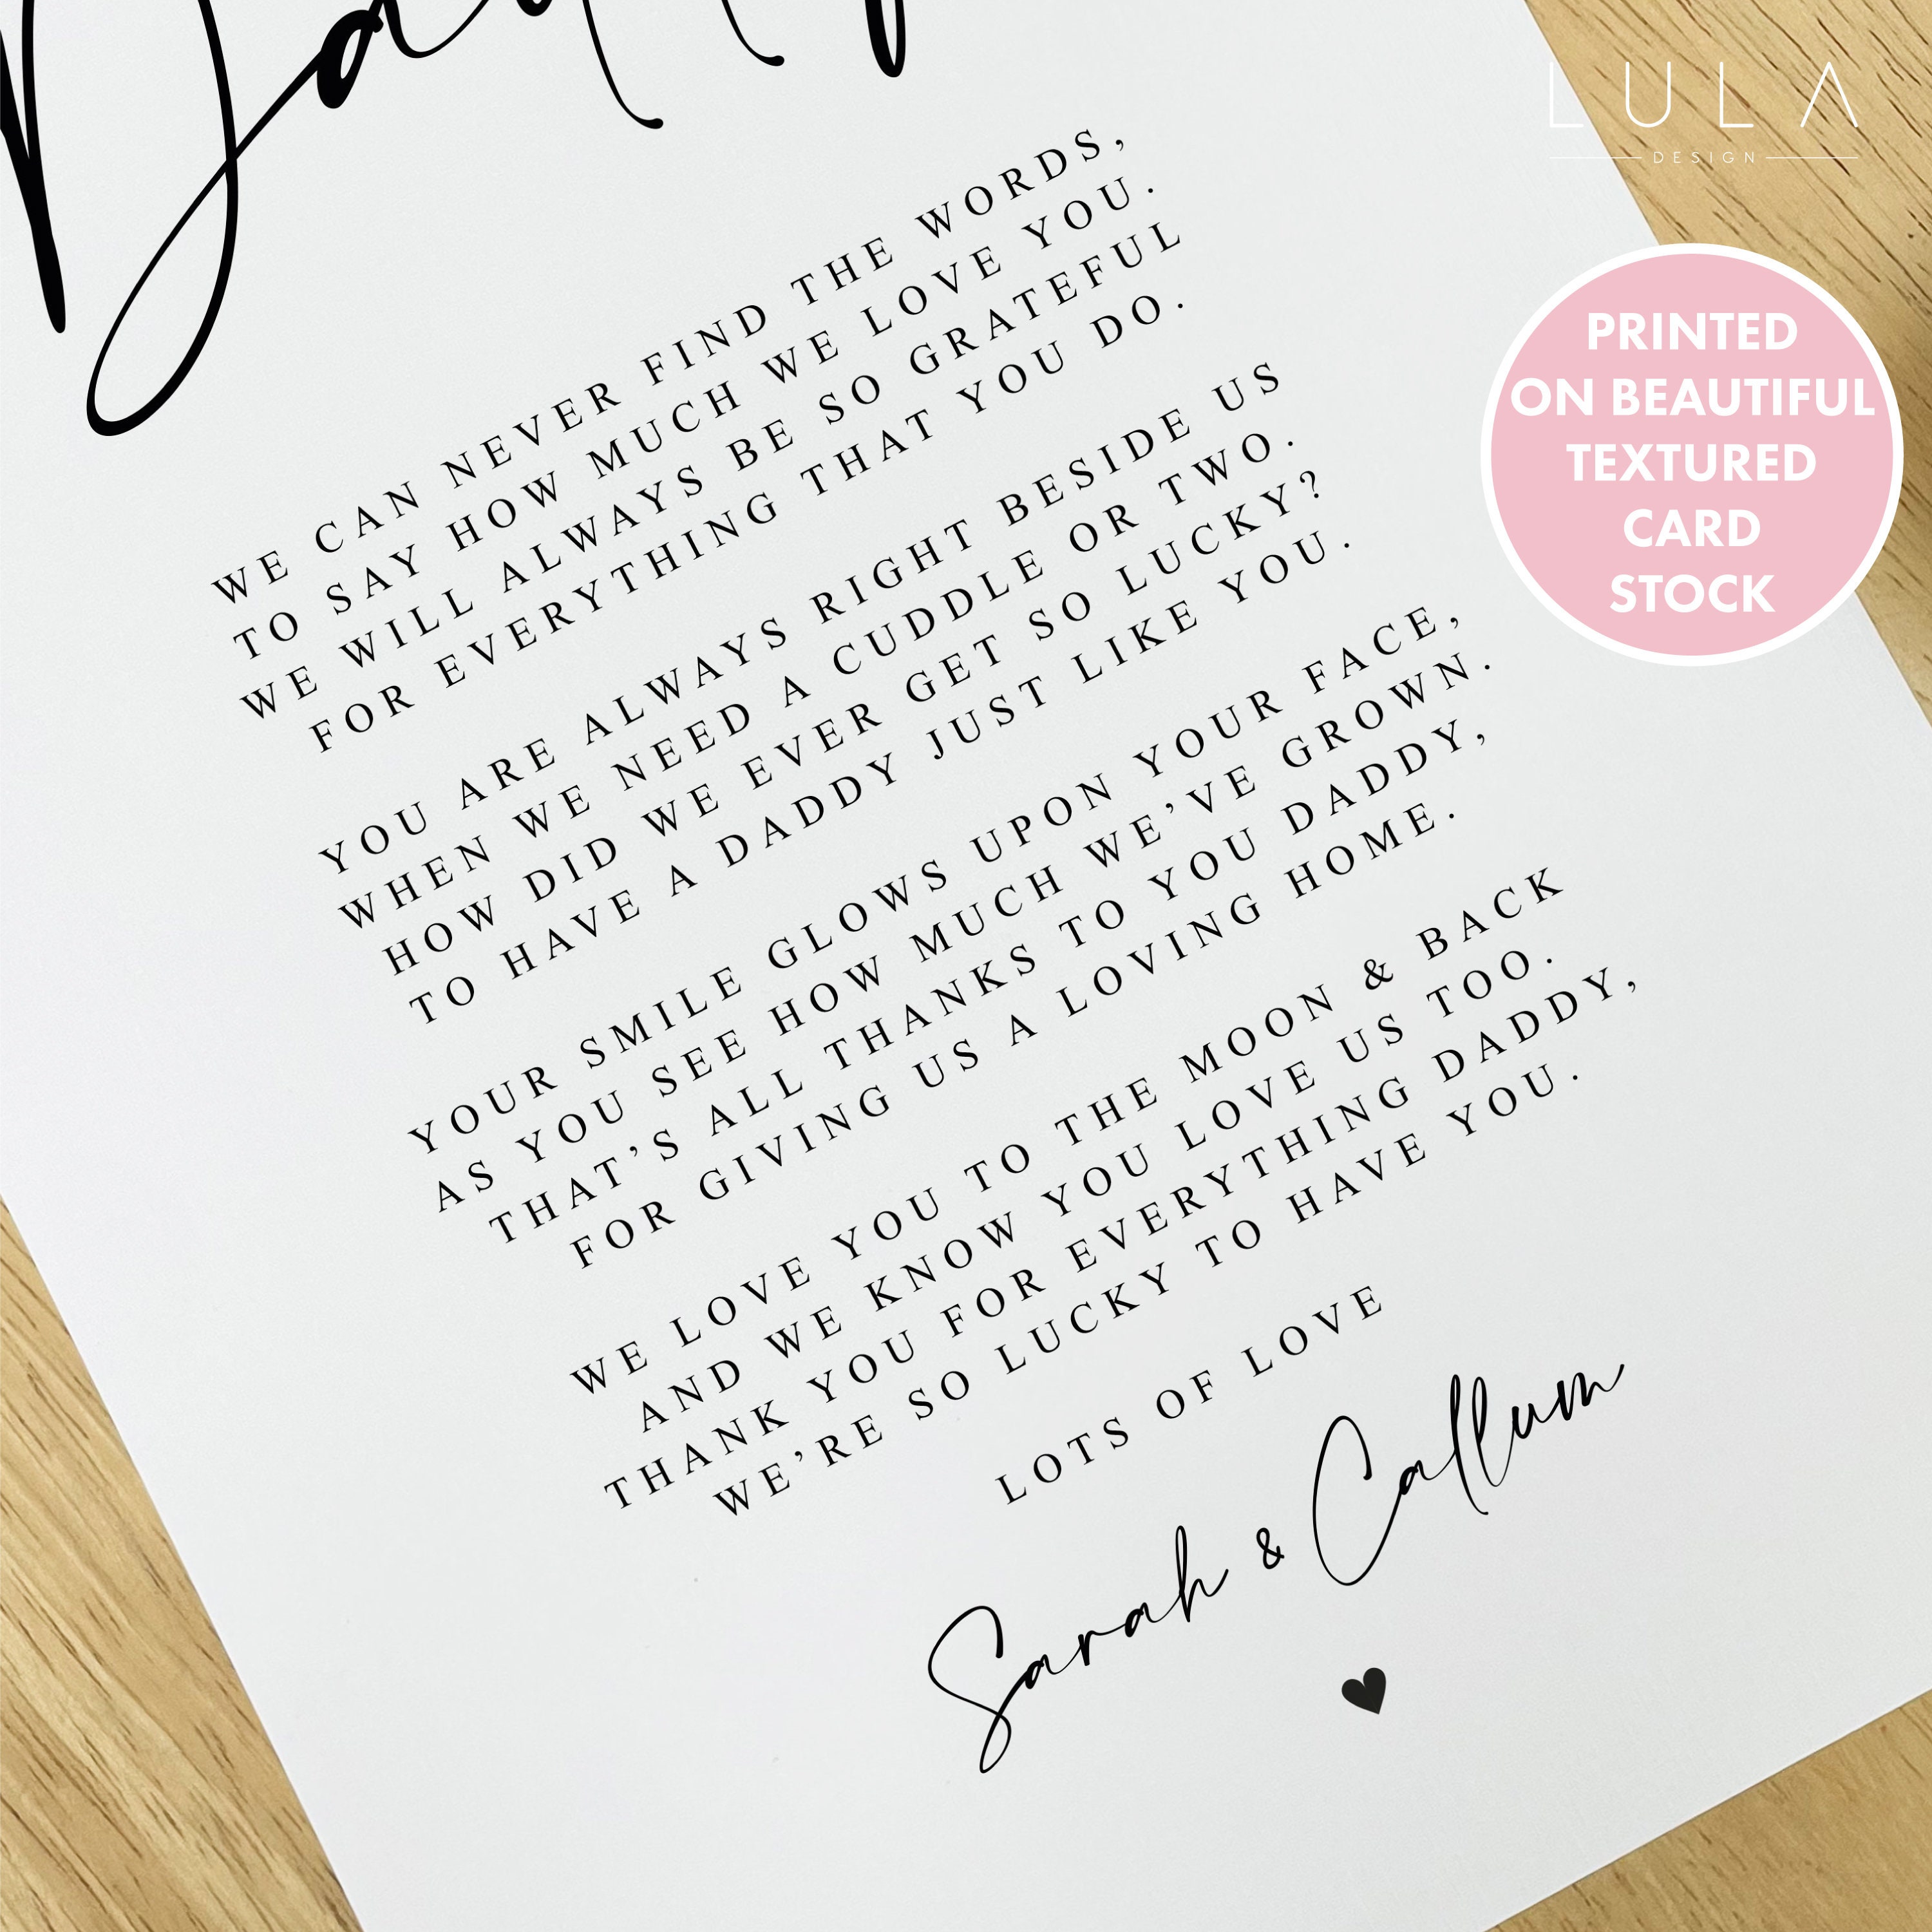 LULA
DESIGN
PRINTED
ON BEAUTIFUL
TEXTURED
CARD
STOCK
WE CAN NEVER FIND THE WORDS,
TO SAY HOW MUCH WE LOVE YOU.
WE WILL ALWAYS BE SO GRATEFUL
FOR EVERYTHING THAT YOU DO.
YOU ARE ALWAYS RIGHT BESIDE US
WHEN WE NEED A CUDDLE OR TWO.
HOW DID WE EVER GET SO LUCKY?
TO HAVE A DADDY JUST LIKE YOU.
YOUR SMILE GLOWS UPON YOUR FACE,
AS YOU SEE HOW MUCH WE'VE GROWN.
THAT'S ALL THANKS TO YOU DADDY,
FOR GIVING US A LOVING HOME.
WE LOVE YOU TO THE MOON & BACK
AND WE KNOW YOU LOVE US TOO.
THANK YOU FOR EVERYTHING DADDY,
WE'RE SO LUCKY TO HAVE YOU.
LOTS OF LOVE
Sarah & Callum